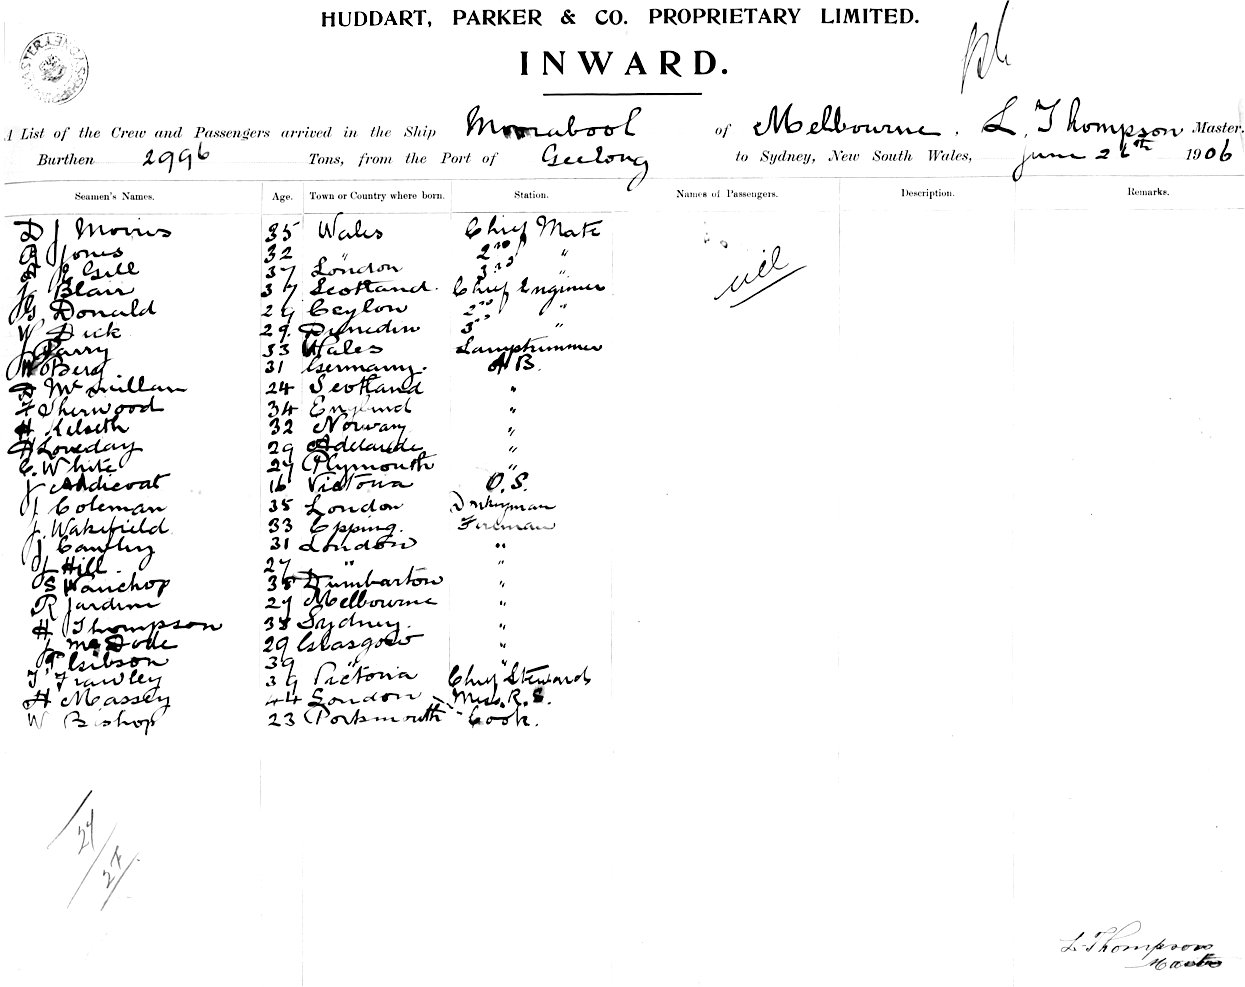 HUDDART, PARKER & CO. PROPRIETARY LIMITED.
INWARD.
A List of the Crew and Passengers arrived in the Ship Moorabool of Melbourne. L. Thompson Master.
Burthen 2996 Tons, from the Port of Geelong to Sydney, New South Wales, June 26th 1906
Seamen's Names. Age. Town or Country where born. Station. Names of Passengers. Description. Remarks.
D J Morris 35 Wales Chief Mate
Jones 32 " 2nd "
Gill 37 London 3rd "
J Blair 37 Scotland. Chief Engineer
G Donald 29 Ceylon 2nd "
W Dick 29 Dunedin 3rd "
J Parry 33 Wales Lamptrimmer
W Berg 31 Germany. A B.
D McMillan 24 Scotland "
F Sherwood 34 England "
H Kilseth 32 Norway "
H Loveday 29 Adelaide "
C. White 27 Plymouth "
J Addicoat 16 Victoria O. S.
J Coleman 35 London Donkeyman
J. Wakefield 33 Epping. Fireman
J 31 London "
J Hill. 27 " "
S Wauchop 38 Dumbarton "
R Jardine 27 Melbourne "
H Thompson 38 Sydney. "
J 29 Glasgow "
Gibson 39 " "
T Frawley 39 Victoria Chief Steward
H Massey 44 London Mess. R. S.
W Bishop 23 Portsmouth Cook.
nil
27
27
L. Thompson
Master